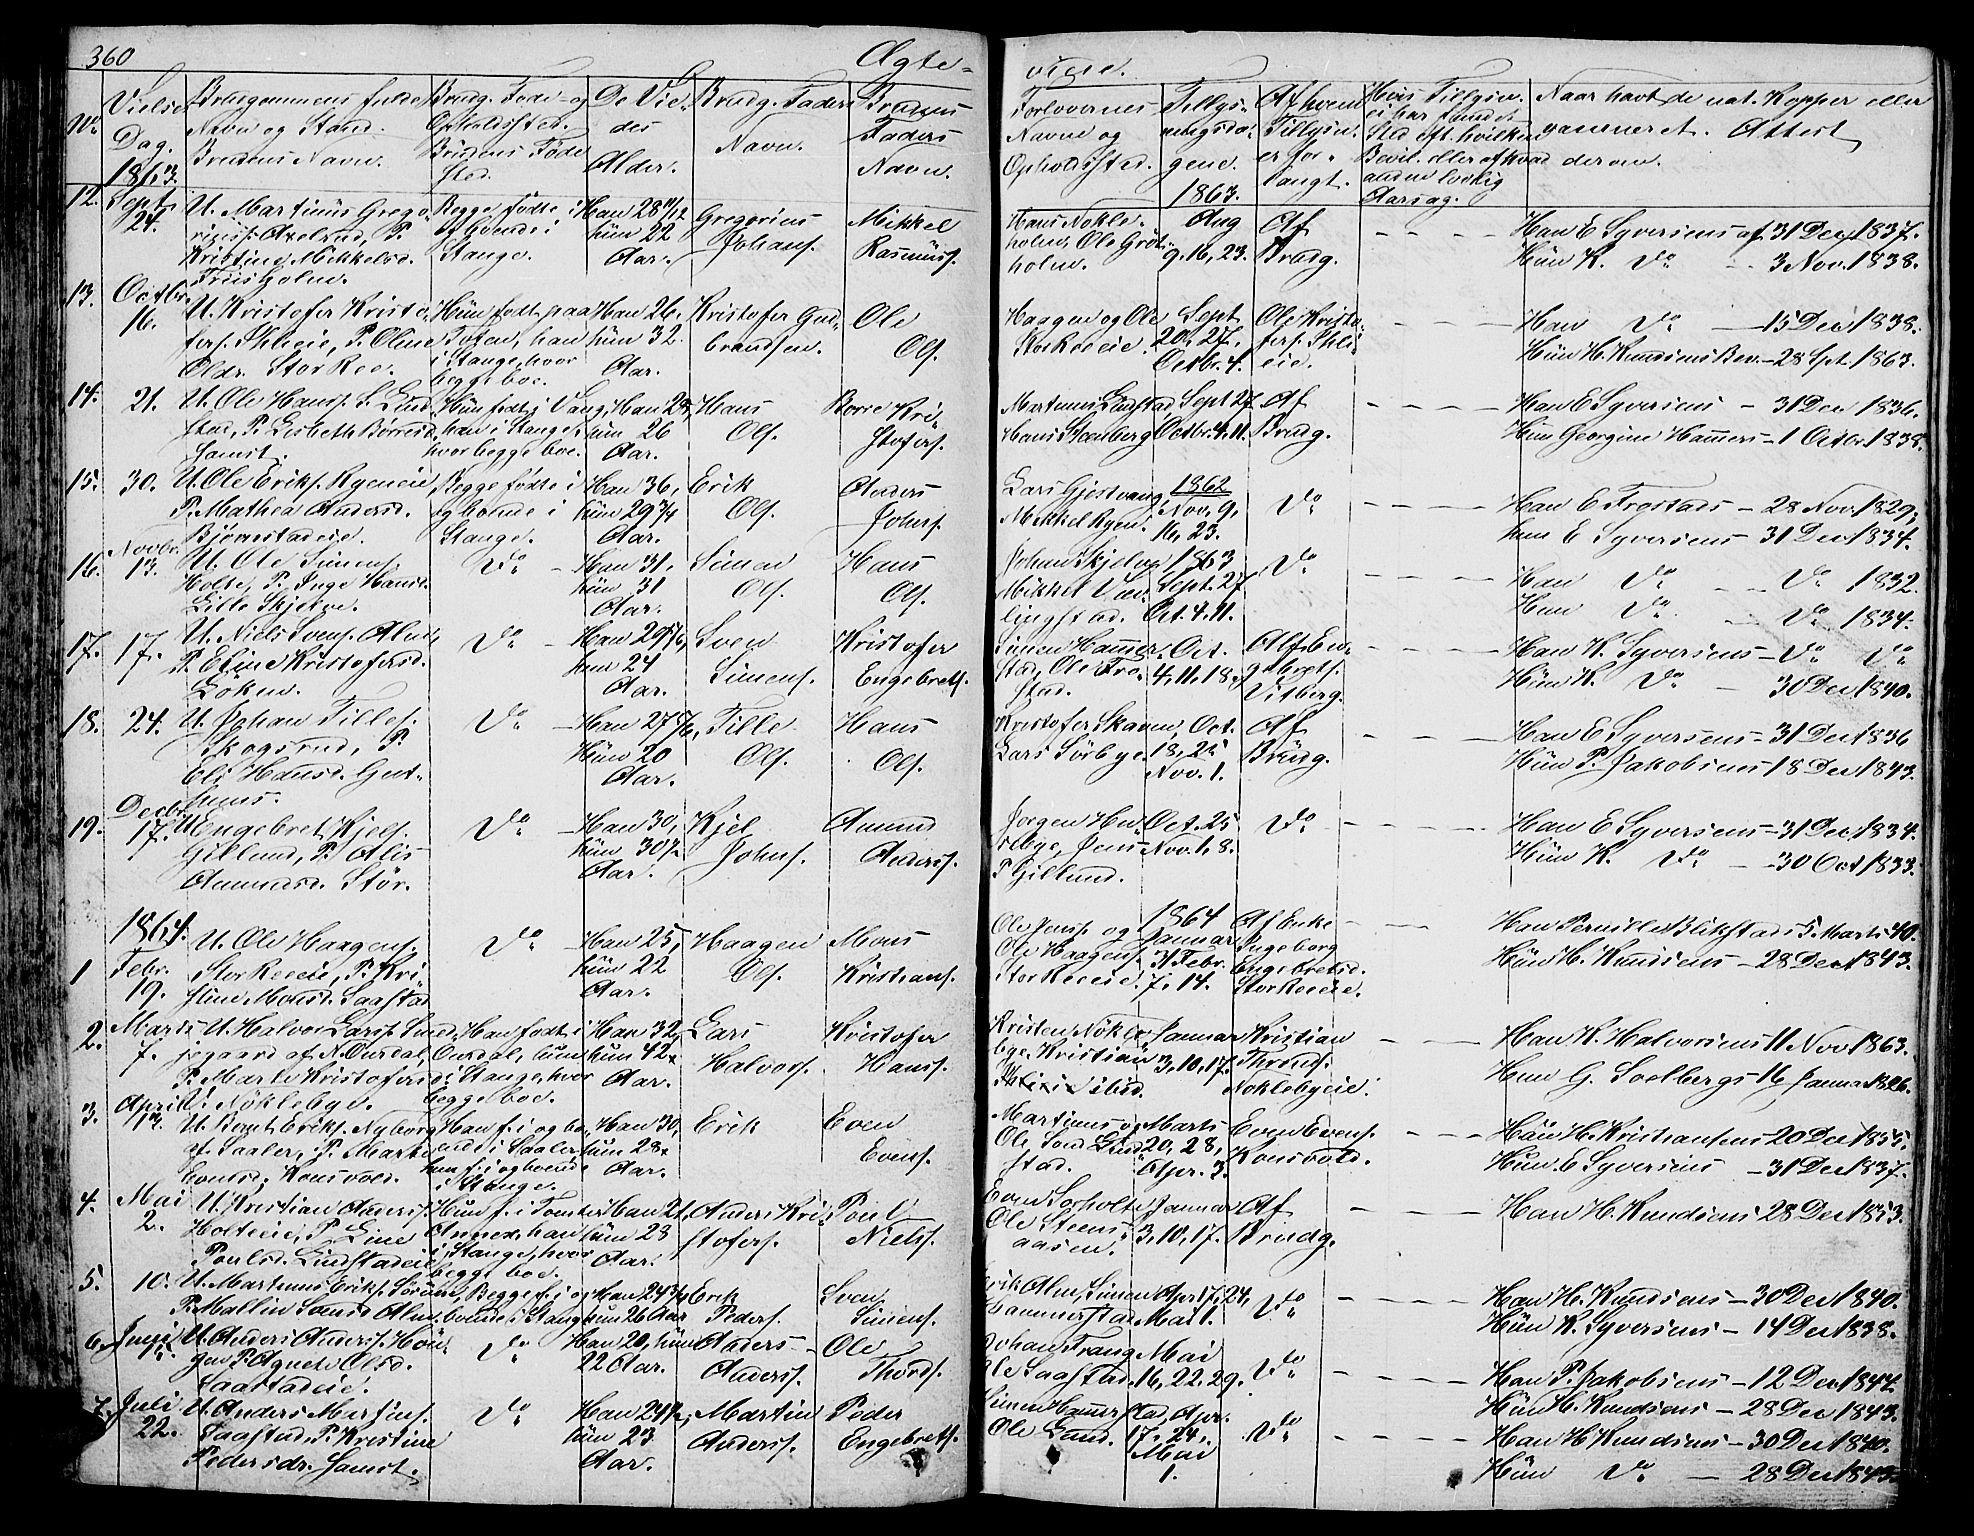 360
Ægte-
viede.
No.
Vielses
Dag.
1863.
Brudgommens fulde
Navn og Stand.
Brudens Navn.
Brudg. Føde- og
Opholdssted.
Brudens Føde
sted.
De Vie-
des
Alder.
Brudg. Faders
Navn.
Brudens
Faders
Navn.
Forlovernes
Navne og
Opholdssted.
Tillys-
ningsda-
gene.
1863.
Af hvem
Tillysn.
er for-
langt.
Hvis Tillysn.
ei har fundet
Sted eft. hvilken
Bevil. eller af hvad
anden lovlig
Aarsag.
Naar havt de nat. Kopper eller
vaccineret. Attest
derom.
12.
Sept
24.
U. Martinus Grego-
riuss. Axelrud, P.
Kristine Mikkelsd.
Friisholm.
Begge fødte i
og boende i
Stange.
Han 28 11/12
hun 22
Aar.
Gregorius
Johans.
Mikkel
Rasmuss.
Hans Nokle-
holm, Ole Grøt-
holm.
Aug
9. 16, 23.
Af
Brudg.
Han E Syversens af 31 Dec 1837.
Hun K. Do 3 Nov. 1838.
13.
Octbr.
16.
U. Kristofer Kristo-
fers. Shlieie, P. Oline
Olsdr. Stor Ree.
Hun født paa
Toten, han
i Stange, hvor
begge boe.
Han 26.
hun 32.
Aar.
Kristofer Gud-
brandsen.
Ole
Ols.
Haagen og Ole
Storreeeie.
Sept
20, 27.
Octbr. 4.
Ole Kristo-
fers. Shli-
eie.
Han Do 15 Dec 1838.
Hun H. Knudsens Bev. 28 Spt. 1863.
14.
21.
U. Ole Hanss. S. Lind-
stad, P. Lisbeth Børresd.
Samst.
Hun født i Vang,
han i Stange,
hvor begge boe.
hun 26
Aar.
Hans
Ols.
Børre Kri-
stofers.
Martinus Lindstad
Hans Steenberg
Sept 27
Octbr. 4. 11.
Af
Brudg.
Han E Syversens 31 Dec 1836.
Hun Georgine Hamers 1 Octbr 1838.
15.
30.
U. Ole Eriks. Ryeneie
P. Mathea Andersd.
Bjørnstadeie.
Begge fødte i
og boende i
Stange.
Han 36,
hun 29 3/4
Aar.
Erik
Ols.
Anders
Johns.
Lars Gjestvang
Mikkel Ryen.
1862
Nov. 9,
16, 23.
Do
Han E Frostads 28 Nov. 1829,
hun E Syversens 31 Dec 1834.
16.
Novbr.
13.
U. Ole Simens.
Holte, P. Inge Hansd.
Lille Skjelve.
Do
Han 31,
hun 31
Aar.
Simen
Ols.
Hans
Ols.
Johan Skjelve
Mikkel Væn-
lingstad.
1863
Sept. 27
Oct. 4. 11.
Do
Han Do Do 1832.
Hun Do Do 1834.
17.
17.
U. Niels Svens. Alm
P. Eline Kristofersd.
Løken.
Do
Han 29
hun 24
Aar.
Sven
Simens.
Kristofer
Engebrets.
Simen Hamer-
stad, Ole Fro-
stad.
Oct.
4, 11, 18,
Alf. En-
gebrets.
Vitberg.
Han K. Syversens Do Do
Hun K. Do 30 Dec 1840.
18.
24.
U. Johan Tilles.
Skogsrud, P.
Eli Hansd. Gut-
huus.
Do
Han 27 5/6,
Hun 20
Aar.
Tille
Ols.
Hans
Ols.
Kristofer Skaven,
Lars Sørbye.
Oct.
18, 25
Nov. 1.
Af
Brudg.
Han E Syversens 31 Dec 1836
Hun P. Jakobsens 18 Dec 1843.
19.
Decbr.
17.
U. Engebret Kjels.
Gillund, P. Alis
Amundsd. Stør.
Do
Han 30,
hun 30 1/2
Aar.
Kjel
Johns.
Amund
Anderss.
Jørgen Hu-
sebye, Jens
P Gillund.
Oct. 25
Nov. 1, 8.
Do
Han E Syversens 31 Dec 1834.
Hun K. Do 30 Oct 1833.
1864.
1
Febr.
19.
U. Ole Haagens.
Storreeeie, P. Kri-
stine Monsd. Saastad
Do
Han 25,
hun 22
Aar.
Haagen
Ols.
Mons
Kristians.
Ole Jens. og
Ole Haagens.
Storreeeie.
1864
Januar
31 Febr.
7. 14.
Af Enke
Ingeborg
Engebretsd.
Storreeeie.
Han Pernille Blikstads 5 Marts 40.
Hun H. Knudsens 28 Dec 1843.
2.
Marts
7.
U. Halvor Larss.
jegaard af N. Ourdal,
P. Marte Kristofers
Nøklebye.
Han født i
Ourdal, hun
i Stange, hvor
begge boe.
Han 32,
hun 42
Aar.
Lars
Halvors.
Kristofer
Hanss.
Kristen Nøkle-
bye, Kristian
ibid.
Januar
3, 10, 17.
Kristian
Thords.
Noklebyeie.
Han K. Halvorsens 11 Nov 1863.
Hun G. Soelbergs 16 Januar 1826.
3.
April
13.
U. Bernt Eriks. Nyborg
af Saaler, P. Marte
Evensd. Konsvold.
Han f. i og bo-
ende i Saaler,
hun f. i og boende
i Stange.
Han 30,
hun 28
Aar.
Erik
Even
Evens.
Martinus og
Ole Lind-
stad.
Marts
20, 28,
Apr. 3.
Even Evens.
Konsvold.
Han H. Kristiansens 20 Dec 1855.
Hun E Syversens 31 Dec 1837.
4.
Mai
2.
U. Kristian Anders.
Holteeie, P. Line
Poulsd. Lindstadeie
Hun f. i Tomter
Annex, han
i Stange, hvor
begge boe.
Han 21,
hun 28
Aar.
Anders Kri-
stofers.
Poul
Niels.
Even Sorholte
Ole Steens-
aasen.
Januar
3, 10, 17.
Af
Brudg.
Han H. Knudsens 28 Dec 1843.
5.
10.
U. Martinus Eriks. Sørum,
P. Mallin Svensd. Alm.
Begge f. i og
boende i Stange
Han 24 3/4
hun 26 Aar
Erik
Peders.
Sven
Simens.
Erik Alm, Simen
Hammerstad
Apr. 17, 24,
Mai 1.
Do
Han H. Knudsens 30 Dec 1840.
Hun K. Syversens 14 Dec 1838.
6.
Juni
U. Anders Anders. Høn-
gen P. Agnete Olsd.
Saastadeie.
Do
Han 20, hun
22 Aar.
Anders
Anderss.
Ole
Thords.
Johan Frang
Ole Saastad.
Mai
16, 22, 29.
Do
Han P. Jakobsens 12 Dec 1844.
Hun H. Knudsens 28 Dec 1843.
7.
Juli
22.
U. Anders Martins.
Taastad, P. Kristine
Pedersdr. Samst.
Do
Han 24 1/2,
hun 23
Aar.
Martin
Anderss.
Peder
Engebrets.
Simen Hamerstad,
Ole Lund.
Apr.
17. 24,
Mai
1.
Do
Han H Knudsens 30 Dec 1840.
Hun Do 28 Dec 1843.